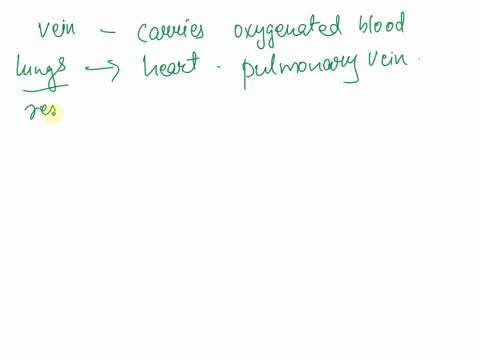 vein - carries oxygenated blood
lungs → heart. pulmonary vein.
res